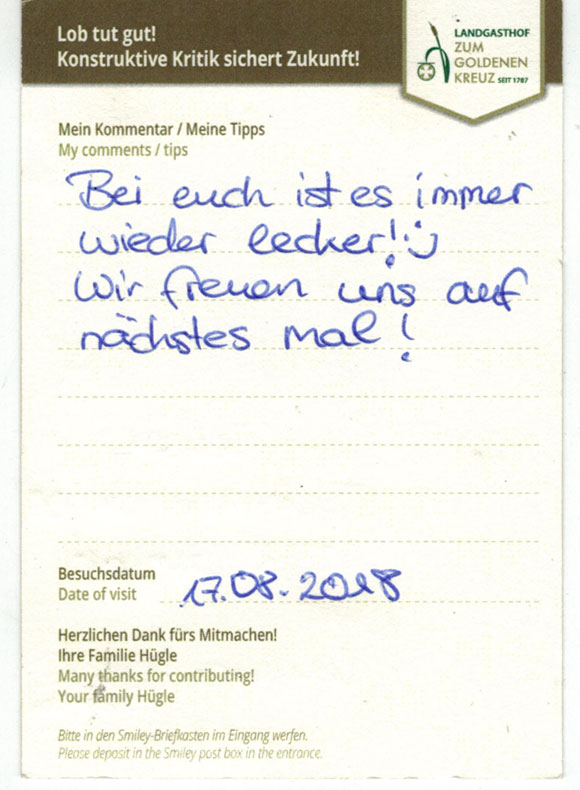 Lob tut gut!
Konstruktive Kritik sichert Zukunft!
LANDGASTHOF
ZUM
GOLDENEN
KREUZ SEIT 1787
Mein Kommentar / Meine Tipps
My comments / tips
Bei euch ist es immer
wieder lecker! :)
Wir freuen uns auf
nächstes mal!
Besuchsdatum
Date of visit
17.08.2018
Herzlichen Dank fürs Mitmachen!
Ihre Familie Hügle
Many thanks for contributing!
Your family Hügle
Bitte in den Smiley-Briefkasten im Eingang werfen.
Please deposit in the Smiley post box in the entrance.